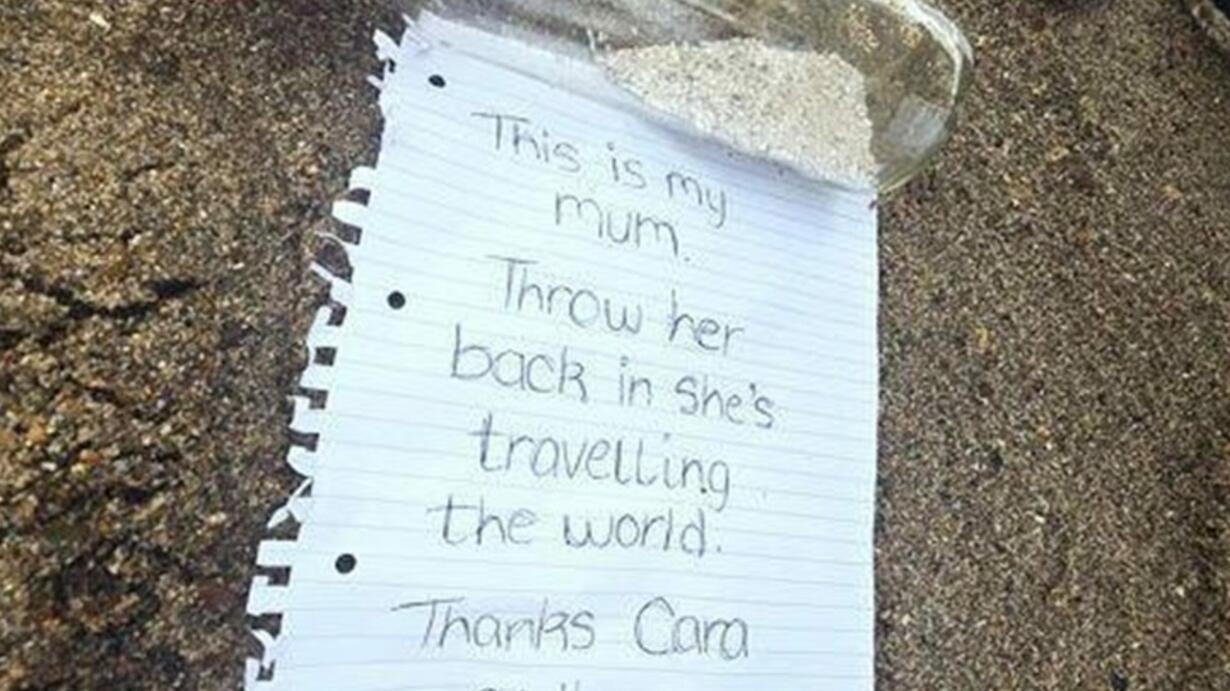 This is my
mum.
Throw her
back in she's
travelling
the world.
Thanks Cara